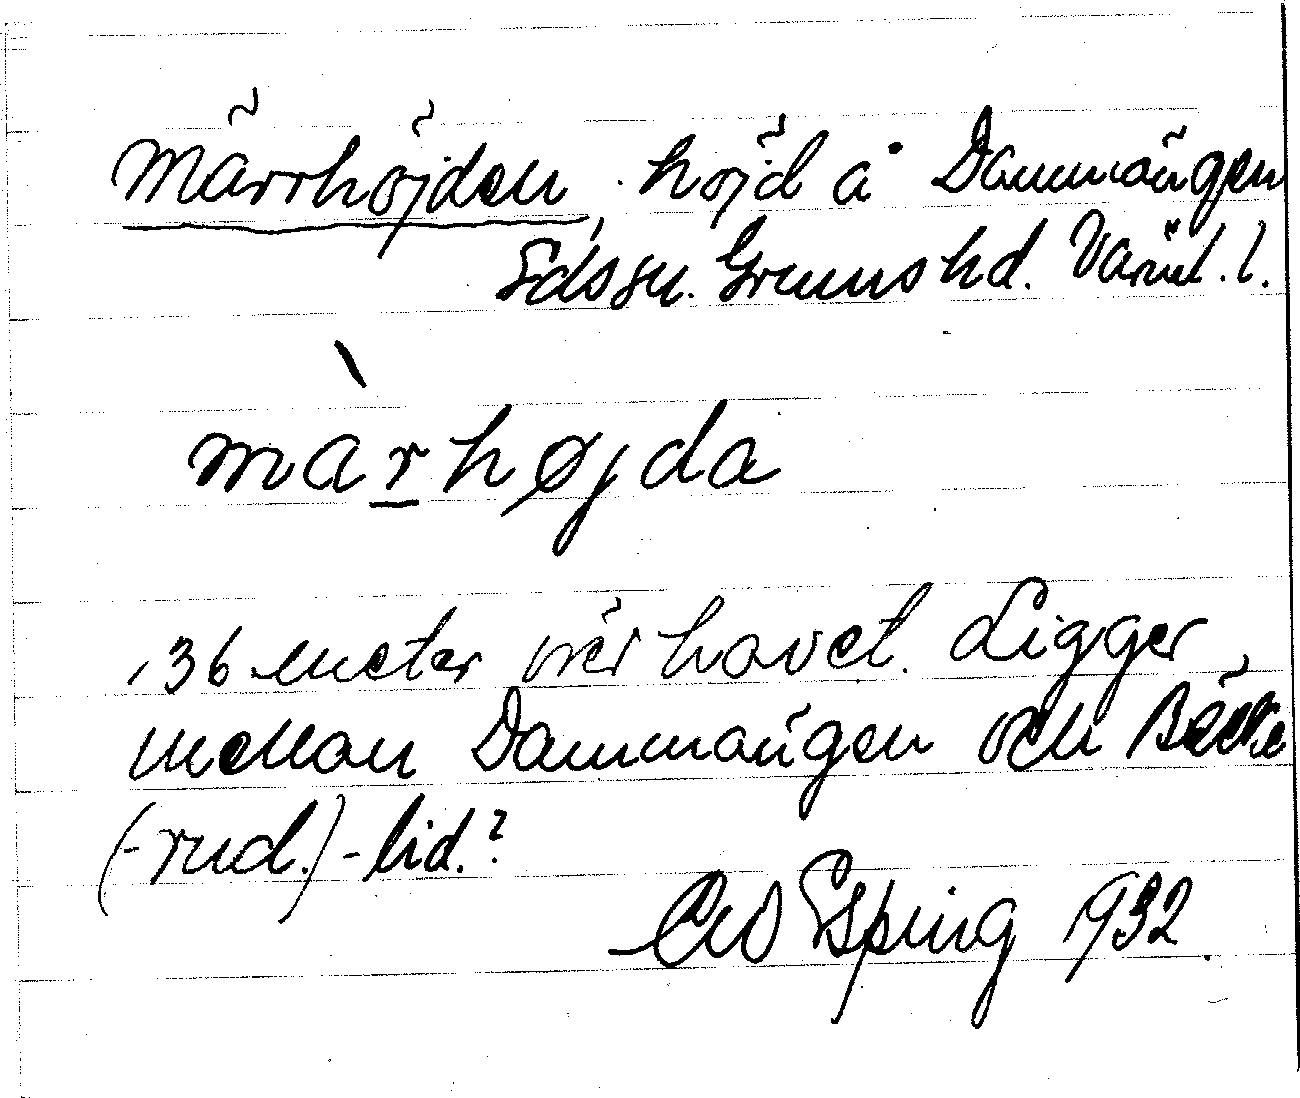 Märrhöjden, höjd å Dammängen
Edssn. Grums hd. Värml. l.
màrhøjda
136 meter över havet. Ligger
mellan Dammängen och Bäcke
(-rud.) -lid.?
Esping 1932.